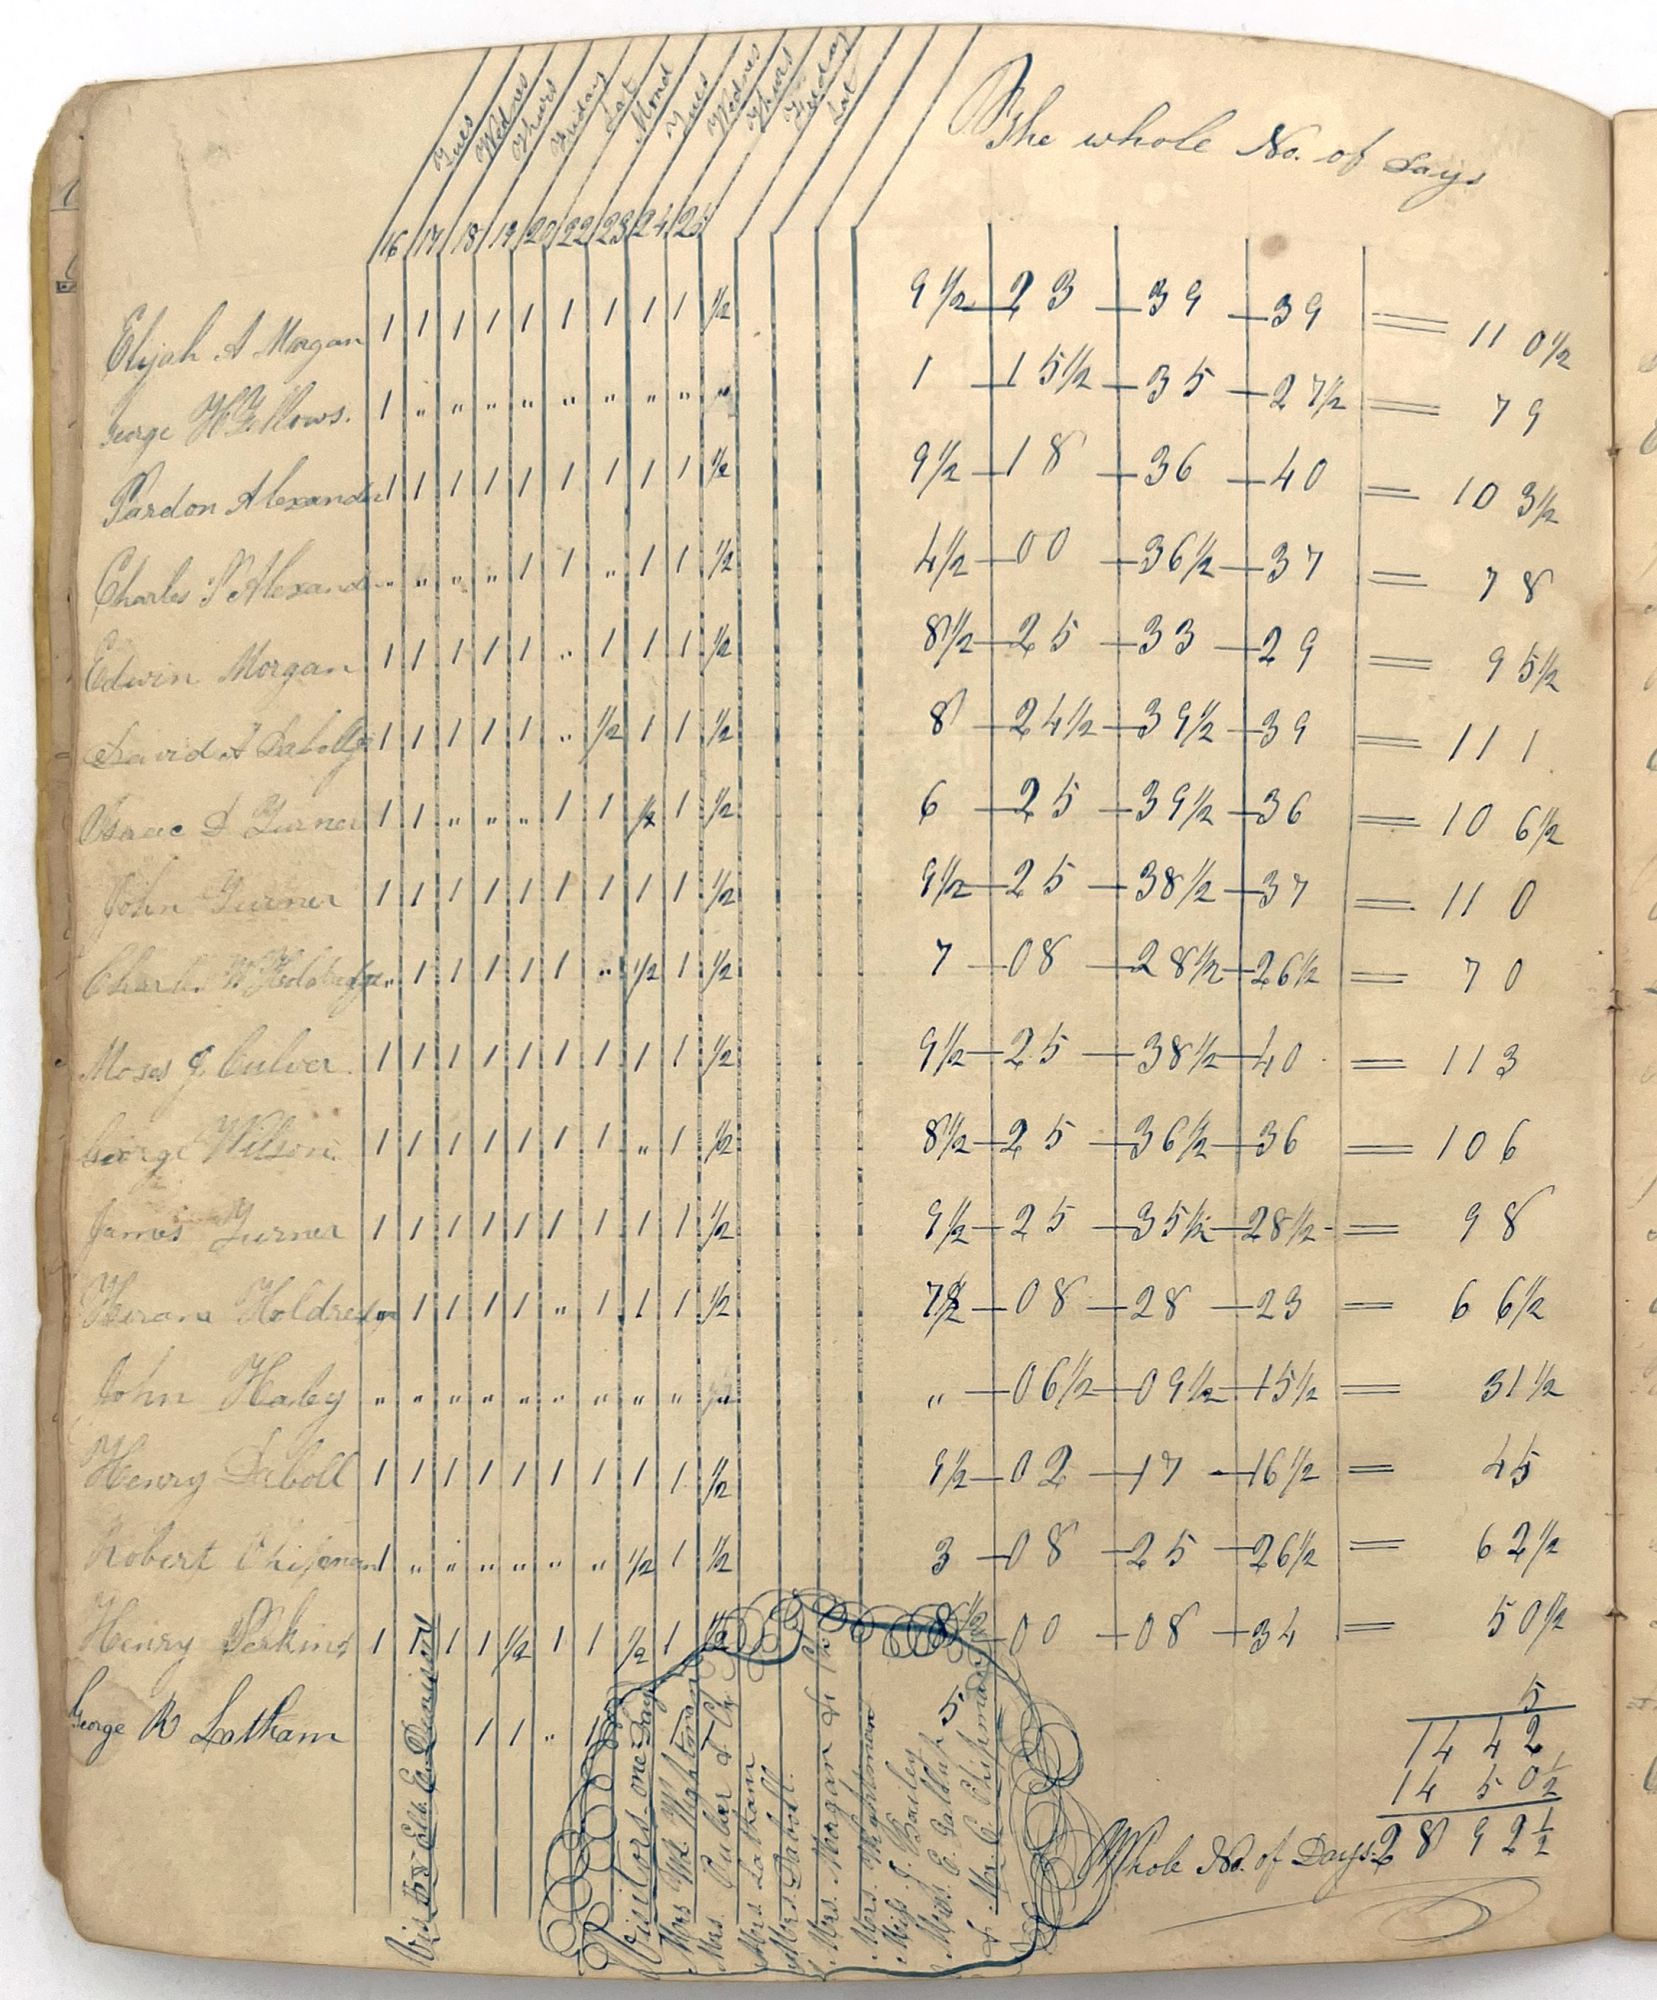 Tues Wednes Thurs Friday Sat Mond Tues Wednes Thurs Friday Sat
The whole No. of Days
16 17 18 19 20 22 23 24 25
Elijah A Morgan 1 1 1 1 1 1 1 1 1 ½ 9½ 23 39 39 = 110½
George H Fellows. 1 " " " " " " " " " 1 15½ 35 27½ = 79
Pardon Alexander 1 1 1 1 1 1 1 1 1 ½ 9½ 18 36 40 = 103½
Charles S Alexander " " " " 1 1 " 1 1 ½ 4½ 00 36½ 37 = 78
Edwin Morgan 1 1 1 1 1 " 1 1 1 ½ 8½ 25 33 29 = 95½
David A Daboll 1 1 1 1 1 " ½ 1 1 ½ 8 24½ 39½ 39 = 111
Isaac D Turner 1 1 " " " 1 1 ½ 1 ½ 6 25 39½ 36 = 106½
John Turner 1 1 1 1 1 1 1 1 1 ½ 9½ 25 38½ 37 = 110
Charles W Holdredge " 1 1 1 1 1 " ½ 1 ½ 7 08 28½ 26½ = 70
Moses J. Culver 1 1 1 1 1 1 1 1 1 ½ 9½ 25 38½ 40 = 113
George Wilson 1 1 1 1 1 1 1 " 1 ½ 8½ 25 36½ 36 = 106
James Turner 1 1 1 1 1 1 1 1 1 ½ 9½ 25 35½ 28½ = 98
Hiram Holdredge 1 1 1 1 " 1 1 1 ½ 7½ 08 28 23 = 66½
John Haley " " " " " " " " " " " 06½ 09½ 15½ = 31½
Henry Daboll 1 1 1 1 1 1 1 1 1 ½ 9½ 02 17 16½ = 45
Robert Chipman 1 " " " " " " ½ 1 ½ 3 08 25 26½ = 62½
Henry Perkins 1 1 1 1 ½ 1 1 ½ 1 ½ 8½ 00 08 34 = 50½
George R Latham 1 1 " 1 5 5
1442
1450½
Whole No. of Days. 2892½
E. Denison
Visitors one Day
Mrs Wm. Wightman
Mrs. Culver &
Mrs Latham
Mrs. Daboll.
Mrs. Morgan &
Mrs. Wightman
Miss. J. Bailey
Miss. E. Gallup
& Mr. C Chipman